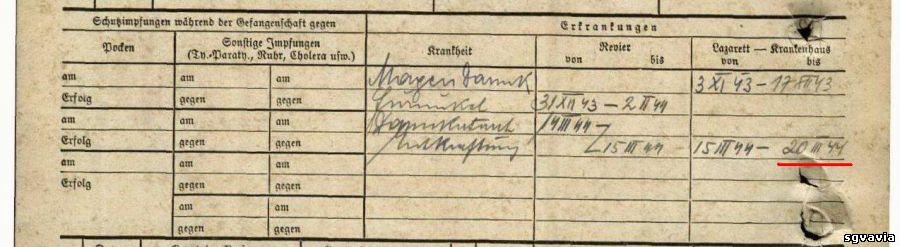 Schutzimpfungen während der Gefangenschaft gegen
Erkrankungen
Pocken
Sonstige Impfungen
(Ty.-Paraty., Ruhr, Cholera usw.)
Krankheit
Revier
von bis
Lazarett — Krankenhaus
von bis
am am am Magen Darmk 3 XI 43 – 17 XII 43
Erfolg gegen gegen Furunkel 31 XII 43 – 2 II 44
am am am 14 III 44 –
Erfolg gegen gegen Entkräftung 15 III 44 15 III 44 – 20 III 44
am am am
Erfolg gegen gegen
am am
gegen gegen
sgvavia